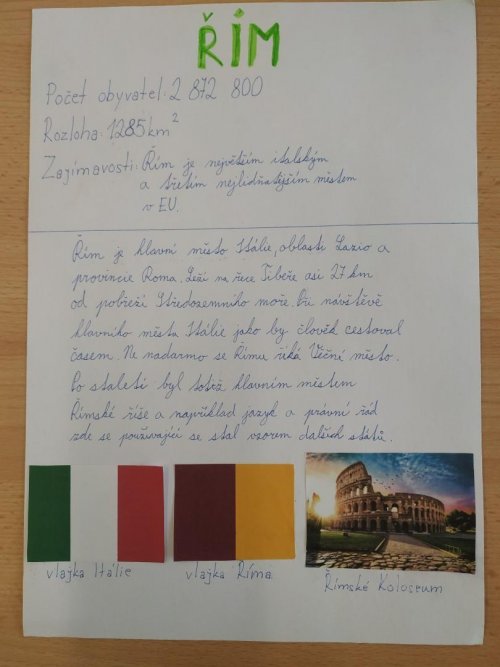 ŘÍM
Počet obyvatel: 2 872 800
Rozloha: 1285 km²
Zajímavosti: Řím je největším italským
a třetím nejlidnatějším městem
v EU.
Řím je hlavní město Itálie, oblasti Lazio a
provincie Roma. Leží na řece Tibeře asi 27 km
od pobřeží Středozemního moře. Při návštěvě
hlavního města Itálie jako by člověk cestoval
časem. Ne nadarmo se Římu říká Věčné město.
Po staletí byl totiž hlavním městem
Římské říše a například jazyk a právní řád
zde se používající se stal vzorem dalších států.
vlajka Itálie
vlajka Říma
Římské Koloseum